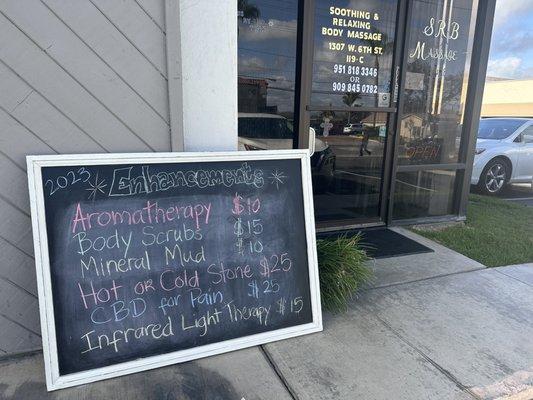 SOOTHING &
RELAXING
BODY MASSAGE
1307 W. 6TH ST.
119-C
951 818 3346
OR
909 845 0782
SRB
MASSAGE
OPEN
2023 Enhancements
Aromatherapy $10
Body Scrubs $15
Mineral Mud $10
Hot or Cold Stone $25
CBD for Pain $25
Infrared Light Therapy $15